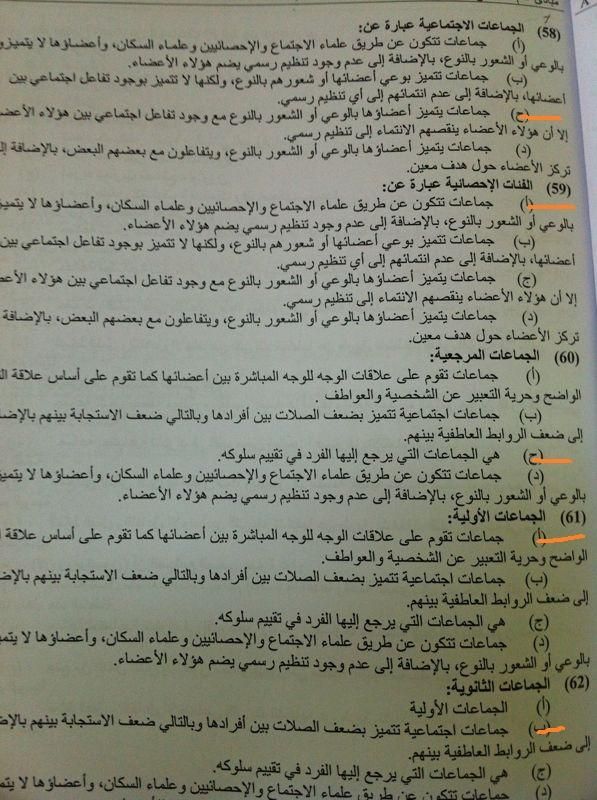 (58) الجماعات الاجتماعية عبارة عن:
(أ) جماعات تتكون عن طريق علماء الاجتماع والإحصائيين وعلماء السكان، وأعضاؤها لا يتميزو
بالوعي أو الشعور بالنوع، بالإضافة إلى عدم وجود تنظيم رسمي يضم هؤلاء الأعضاء.
(ب) جماعات تتميز بوعي أعضائها أو شعورهم بالنوع، ولكنها لا تتميز بوجود تفاعل اجتماعي بين
أعضائها، بالإضافة إلى عدم انتمائهم إلى أي تنظيم رسمي.
(ج) جماعات يتميز أعضاؤها بالوعي أو الشعور بالنوع مع وجود تفاعل اجتماعي بين هؤلاء الأعضا
إلا أن هؤلاء الأعضاء ينقصهم الانتماء إلى تنظيم رسمي.
(د) جماعات يتميز أعضاؤها بالوعي أو الشعور بالنوع، ويتفاعلون مع بعضهم البعض، بالإضافة إل
تركز الأعضاء حول هدف معين.
(59) الفئات الإحصائية عبارة عن:
(أ) جماعات تتكون عن طريق علماء الاجتماع والإحصائيين وعلماء السكان، وأعضاؤها لا يتميز
بالوعي أو الشعور بالنوع، بالإضافة إلى عدم وجود تنظيم رسمي يضم هؤلاء الأعضاء.
(ب) جماعات تتميز بوعي أعضائها أو شعورهم بالنوع، ولكنها لا تتميز بوجود تفاعل اجتماعي بين
أعضائها، بالإضافة إلى عدم انتمائهم إلى أي تنظيم رسمي.
(ج) جماعات يتميز أعضاؤها بالوعي أو الشعور بالنوع مع وجود تفاعل اجتماعي بين هؤلاء الأعض
إلا أن هؤلاء الأعضاء ينقصهم الانتماء إلى تنظيم رسمي.
(د) جماعات يتميز أعضاؤها بالوعي أو الشعور بالنوع، ويتفاعلون مع بعضهم البعض، بالإضافة
تركز الأعضاء حول هدف معين.
(60) الجماعات المرجعية:
(أ) جماعات تقوم على علاقات الوجه للوجه المباشرة بين أعضائها كما تقوم على أساس علاقة ال
الواضح وحرية التعبير عن الشخصية والعواطف .
(ب) جماعات اجتماعية تتميز بضعف الصلات بين أفرادها وبالتالي ضعف الاستجابة بينهم بالإضا
إلى ضعف الروابط العاطفية بينهم.
(ج) هي الجماعات التي يرجع إليها الفرد في تقييم سلوكه.
(د) جماعات تتكون عن طريق علماء الاجتماع والإحصائيين وعلماء السكان، وأعضاؤها لا يتميز
بالوعي أو الشعور بالنوع، بالإضافة إلى عدم وجود تنظيم رسمي يضم هؤلاء الأعضاء.
(61) الجماعات الأولية:
(أ) جماعات تقوم على علاقات الوجه للوجه المباشرة بين أعضائها كما تقوم على أساس علاقة ا
الواضح وحرية التعبير عن الشخصية والعواطف.
(ب) جماعات اجتماعية تتميز بضعف الصلات بين أفرادها وبالتالي ضعف الاستجابة بينهم بالإضا
إلى ضعف الروابط العاطفية بينهم.
(ج) هي الجماعات التي يرجع إليها الفرد في تقييم سلوكه.
(د) جماعات تتكون عن طريق علماء الاجتماع والإحصائيين وعلماء السكان، وأعضاؤها لا يتمي
بالوعي أو الشعور بالنوع، بالإضافة إلى عدم وجود تنظيم رسمي يضم هؤلاء الأعضاء.
(62) الجماعات الثانوية:
(أ) الجماعات الأولية
(ب) جماعات اجتماعية تتميز بضعف الصلات بين أفرادها وبالتالي ضعف الاستجابة بينهم بالإضا
إلى ضعف الروابط العاطفية بينهم.
(ج) هي الجماعات التي يرجع إليها الفرد في تقييم سلوكه.
(د) جماعات تتكون عن طريق علماء الاجتماع والإحصائيين وعلماء السكان، وأعضاؤها لا يتم